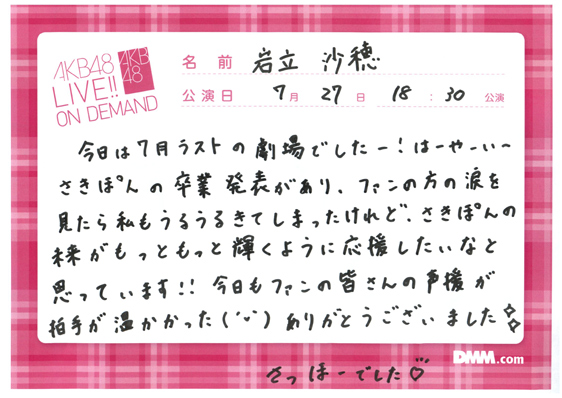 AKB48
LIVE!!
ON DEMAND
AKB
48
名前 岩立 沙穂
公演日 7月 27日 18:30公演
今日は7月ラストの劇場でしたー!はーやーいー
さきぽんの卒業発表があり、ファンの方の涙を
見たら私もうるうるきてしまったけれど、さきぽんの
未来がもっともっと輝くように応援したいなと
思っています!!今日もファンの皆さんの声援が
拍手が温かかった('ᴗ')ありがとうございました✧
DMM.com
さっほーでした♡